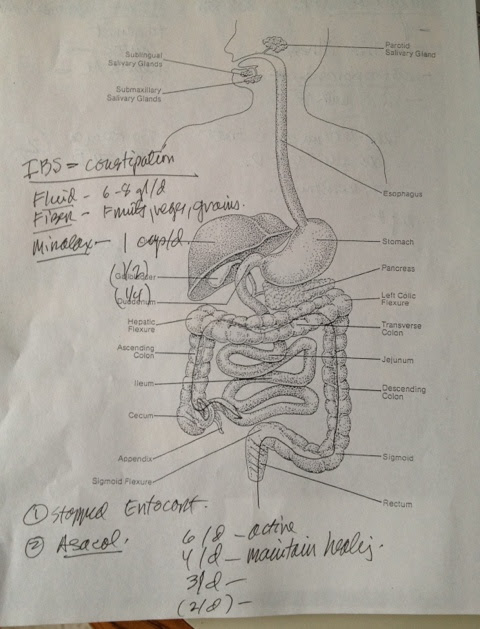 Sublingual
Salivary Glands
Parotid
Salivary Gland
Submaxillary
Salivary Glands
IBS = constipation
Fluid - 6-8 gl/d
Fiber - Fruits, veges, grains.
Esophagus
Miralax - 1 cap/d.
Stomach
(1/2)
Pancreas
(1/4)
Duodenum
Left Colic
Flexure
Hepatic
Flexure
Transverse
Colon
Ascending
Colon
Jejunum
Ileum
Descending
Colon
Cecum
Appendix
Sigmoid
Sigmoid Flexure
Rectum
① Stopped Entocort.
② Asacol.
6/d - active
4/d - maintain
3/d -
(2/d) -